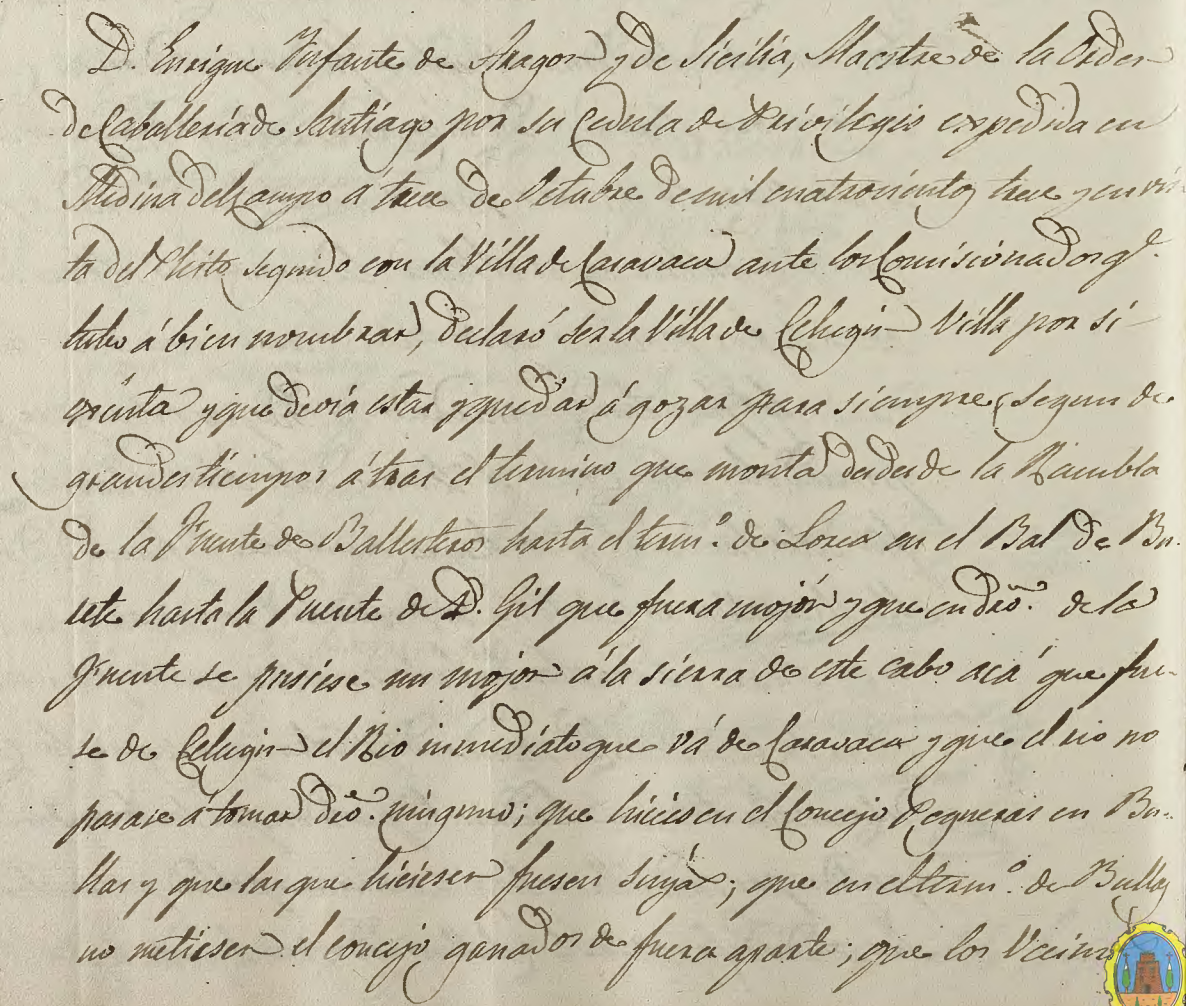 D. Enrique Infante de Aragon y de Sicilia, Maestre de la Orden
de Caballeria de Santiago por su Cedula de Privilegio expedida en
Medina del Campo á trece de Octubre de mil cuatrocientos trece y en vis-
ta del Pleito seguido con la Villa de Caravaca ante los Comisionados qe.
tubo á bien nombrar, declaró ser la Villa de Cehegin Villa por si
esenta y que devia estar y quedar á gozar para siempre, segun de
grandes tiempos á tras el termino que monta desde de la Rambla
de la Fuente de Ballesteros hasta el termo. de Lorca en el Bal de Bu-
llete hasta la Fuente de D. Gil que fuera mojón y que en dro. de la
Fuente se pusiese un mojon á la sierra de este cabo acá que fue-
se de Cehegin el Rio inmediato que vá de Caravaca y que el rio no
pasase á tomar dro. ninguno; que hiciesen el Concejo Pegueras en Bu-
llas y que las que hiciesen fuesen suyas; que en el termo. de Bullas
no metiesen el concejo ganados de fuera aparte; que los Vecinos